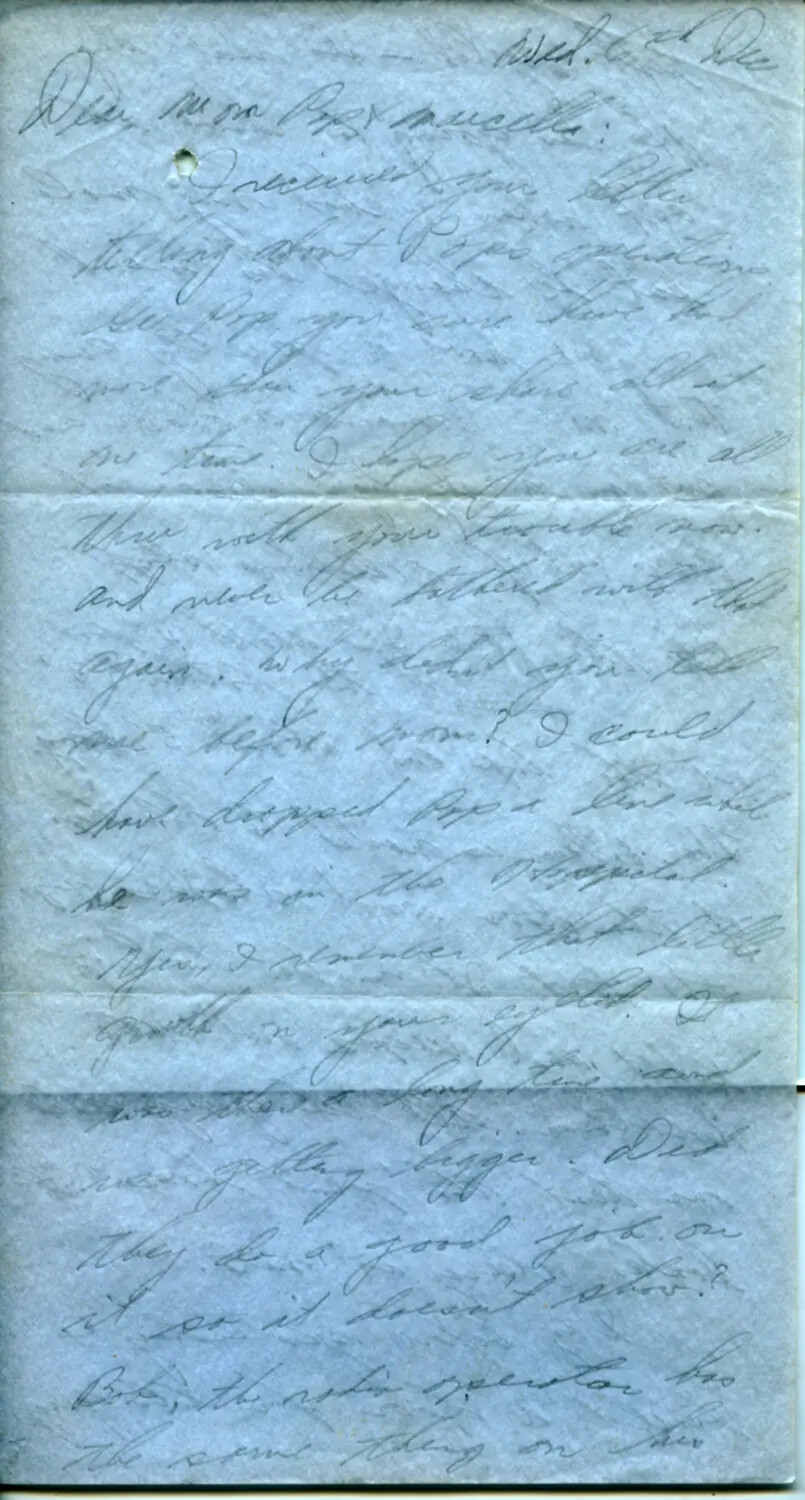 Wed. 6th Dec
Dear Mom Pop & Marcella:
I received your letter
telling about Pop's operation
Gee Pop, you sure have had
more than your share all at
one time. I hope you are all
thru with your trouble now.
and never be bothered with that
again. Why didn't you tell
me before Mom? I could
have dropped Pop a line while
he was in the Hospital.
Yes, I remember that little
growth on your eyelid. It
was there a long time and
was getting bigger. Did
they do a good job on
it so it doesn't show?
Bob, the radio operator has
the same thing on his